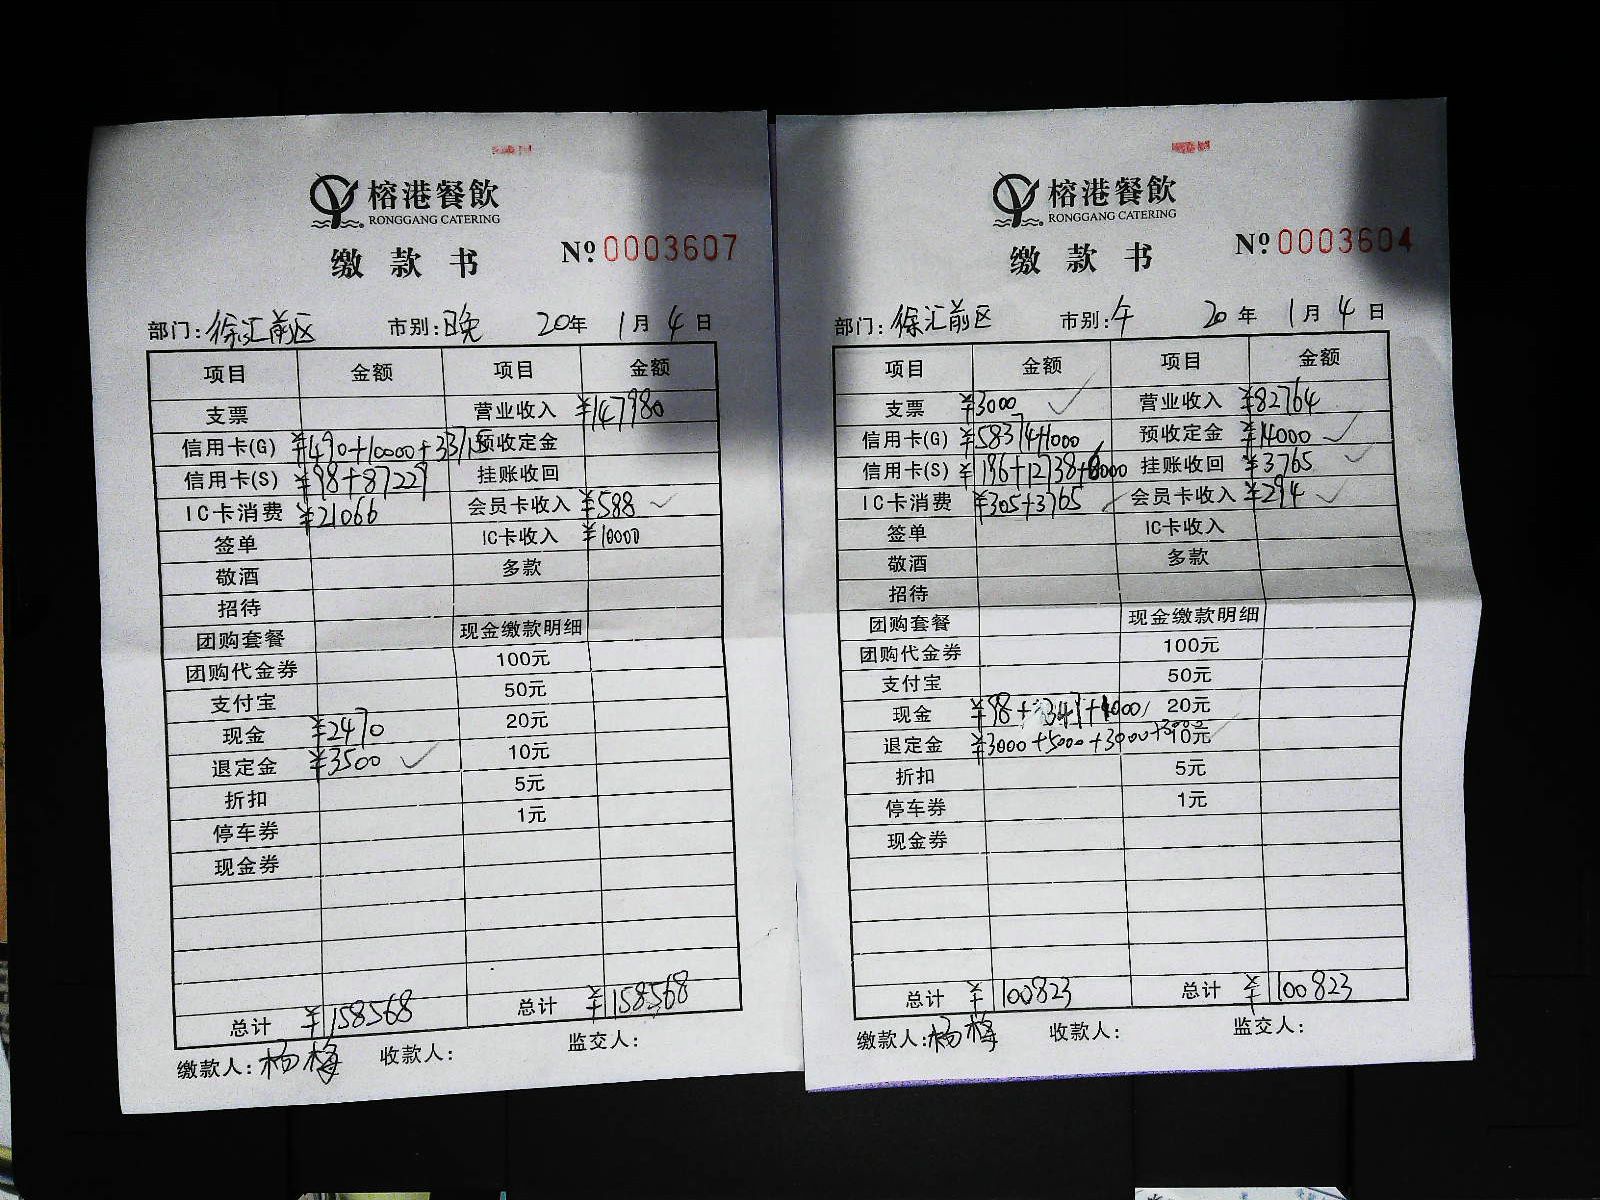 榕港餐飲
RONGGANG CATERING
缴款书 Nº 0003607
部门:徐汇前区 市别:晚 20年 1月 4日
项目 金额 项目 金额
支票 营业收入 ¥147980
信用卡(G) ¥490+10000+33715 预收定金
信用卡(S) ¥98+87229 挂账收回
IC卡消费 ¥21066 会员卡收入 ¥588
签单 IC卡收入 ¥10000
敬酒 多款
招待
团购套餐 现金缴款明细
团购代金券 100元
支付宝 50元
现金 ¥2470 20元
退定金 ¥3500 10元
折扣 5元
停车券 1元
现金券
总计 ¥158568 总计 ¥158568
缴款人:杨梅 收款人: 监交人:
榕港餐飲
RONGGANG CATERING
缴款书 Nº 0003604
部门:徐汇前区 市别:午 20年 1月 4日
项目 金额 项目 金额
支票 ¥3000 营业收入 ¥82764
信用卡(G) ¥58374+1000 预收定金 ¥14000
信用卡(S) ¥196+12738+6000 挂账收回 ¥3765
IC卡消费 ¥305+3765 会员卡收入 ¥294
签单 IC卡收入
敬酒 多款
招待
团购套餐 现金缴款明细
团购代金券 100元
支付宝 50元
现金 ¥98+347+1000 20元
退定金 ¥3000+5000+3000+3000 10元
折扣 5元
停车券 1元
现金券
总计 ¥100823 总计 ¥100823
缴款人:杨梅 收款人: 监交人: